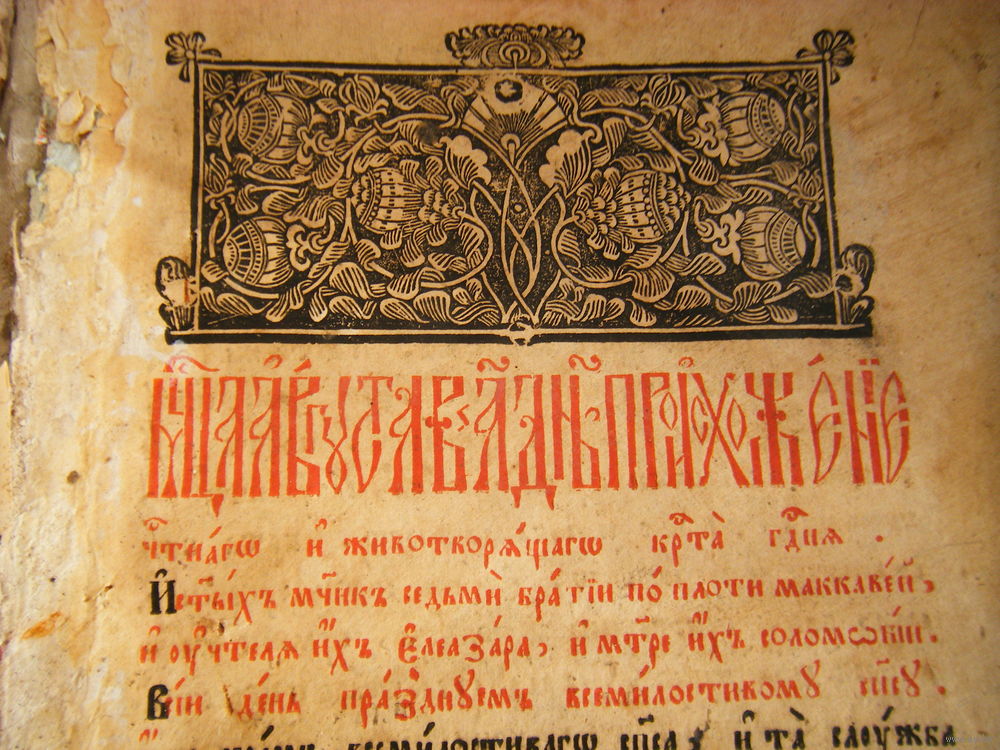 мц҃а а҆́вгуста в҃ а҆ дн҃ь происхожде́нїе
чⷭ҇тна́гѡ и҆ животворѧ́щагѡ крⷭ҇та̀ гдⷭ҇нѧ .
И҆ ст҃ы́хъ мч҃нкъ седьмѝ бра́тїи по́ плоти маккаве́й,
и҆ ᲂу҆чи́телѧ и҆́хъ є҆леаза́ра, и҆ мт҃ре и҆́хъ соломѡні́и.
В сі́и де́нь пра́зднуемъ всеми́лостивому сп҃су .
всеми́лостивагѡ сп҃са, и҆ та̀ слꙋ́жба